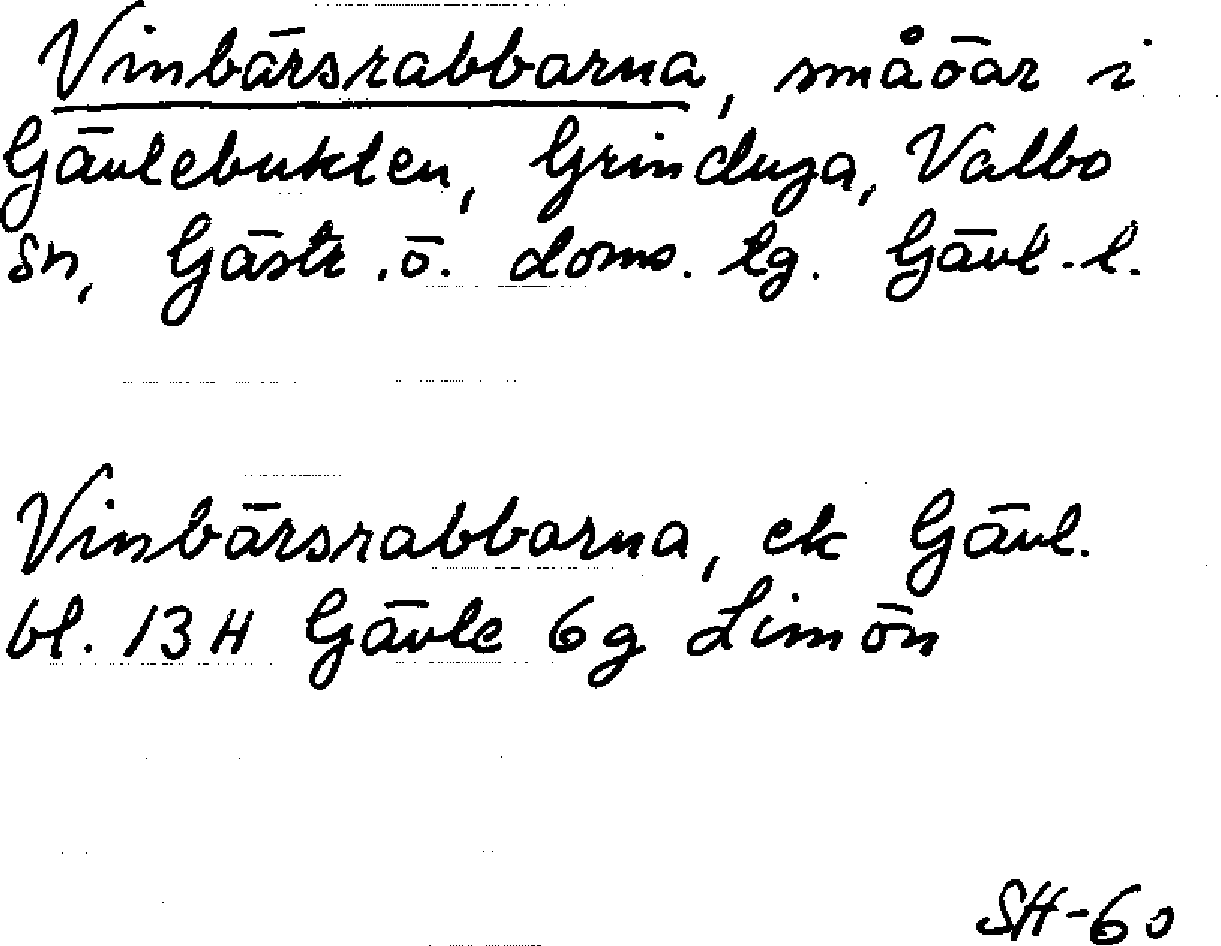 Vinbärsrabbarna, småöar i
Gävlebukten, Grinduga, Valbo
sn, Gästr. ö. doms. tg. Gävl. l.
Vinbärsrabbarna, ek Gävl.
bl. 13H Gävle 6g Limön
SH-60